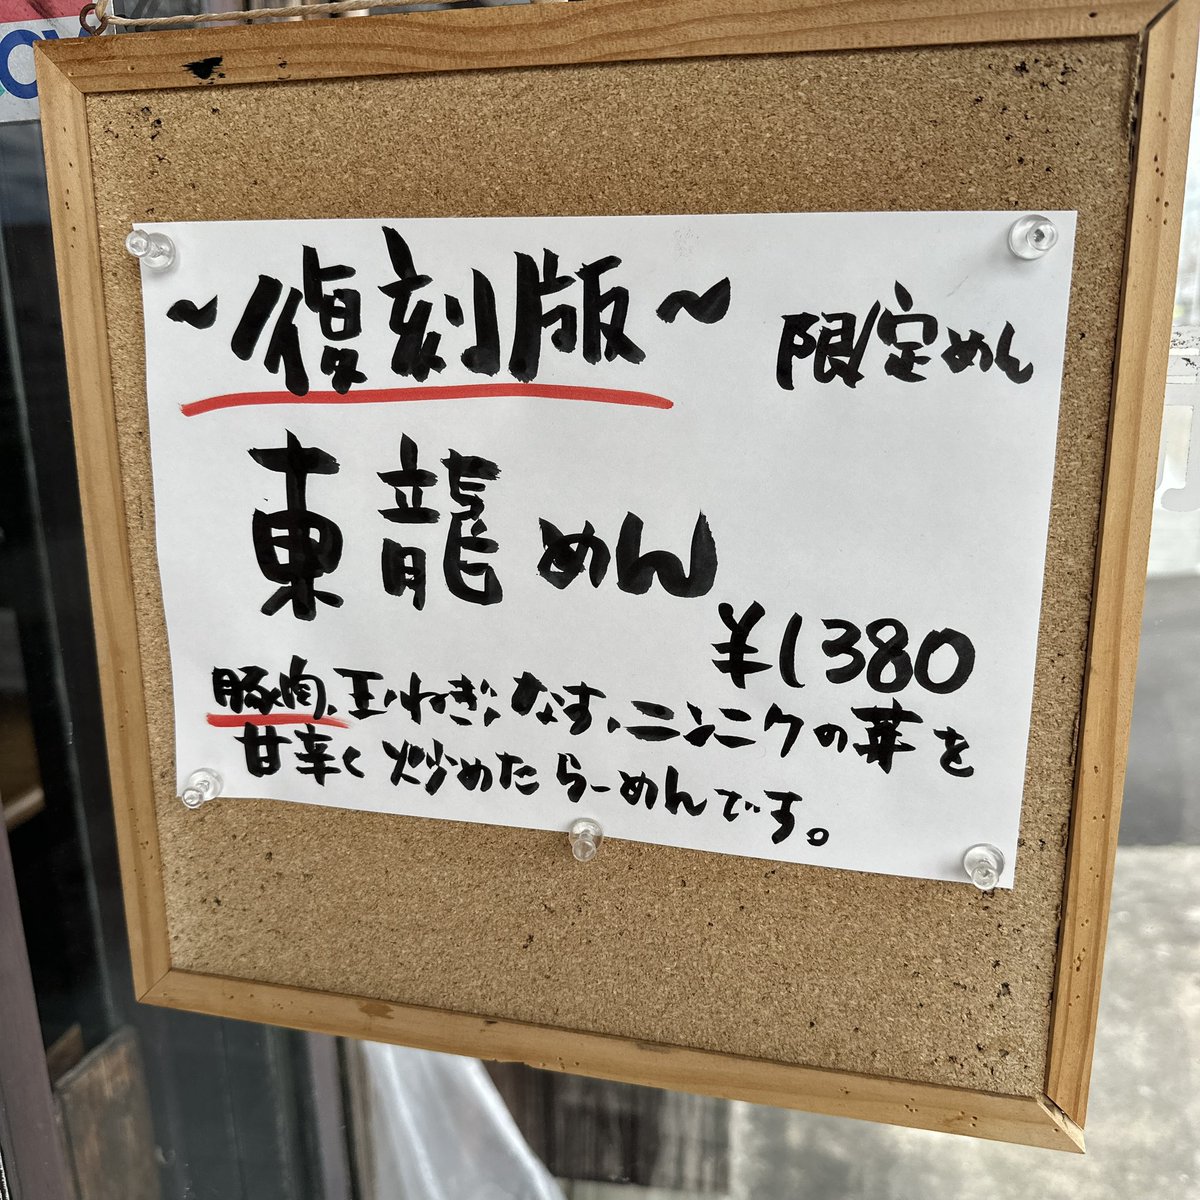 ～復刻版～ 限定めん
東龍めん
¥1380
豚肉、玉ねぎ、なす、ニンニクの芽を
甘辛く炒めたらーめんです。